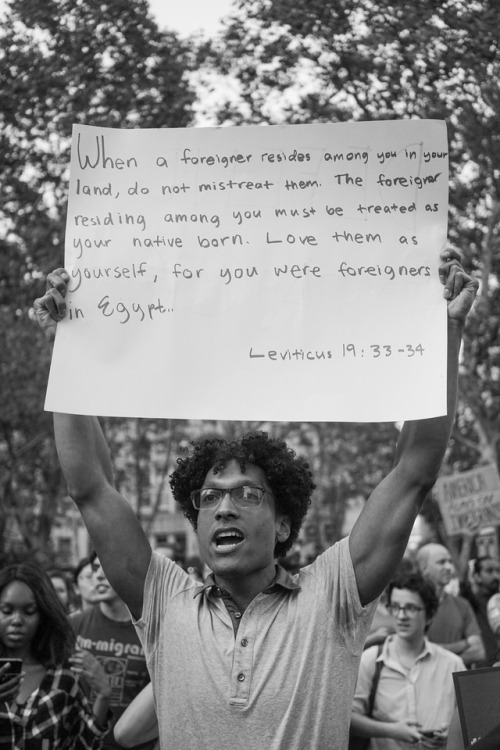 When a foreigner resides among you in your
land, do not mistreat them. The foreigner
residing among you must be treated as
your native born. Love them as
yourself, for you were foreigners
in Egypt..
Leviticus 19:33-34
AMERICA